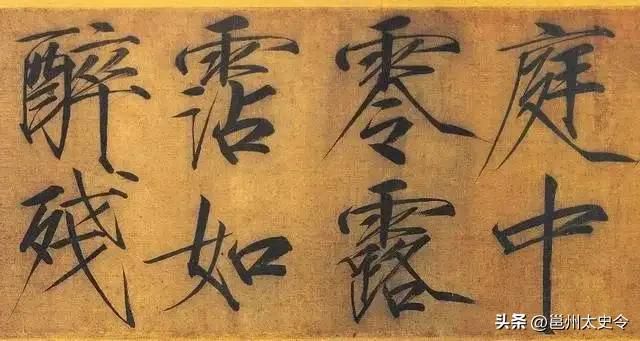 庭中
零露
霑如
醉残
头条 @邕州太史令